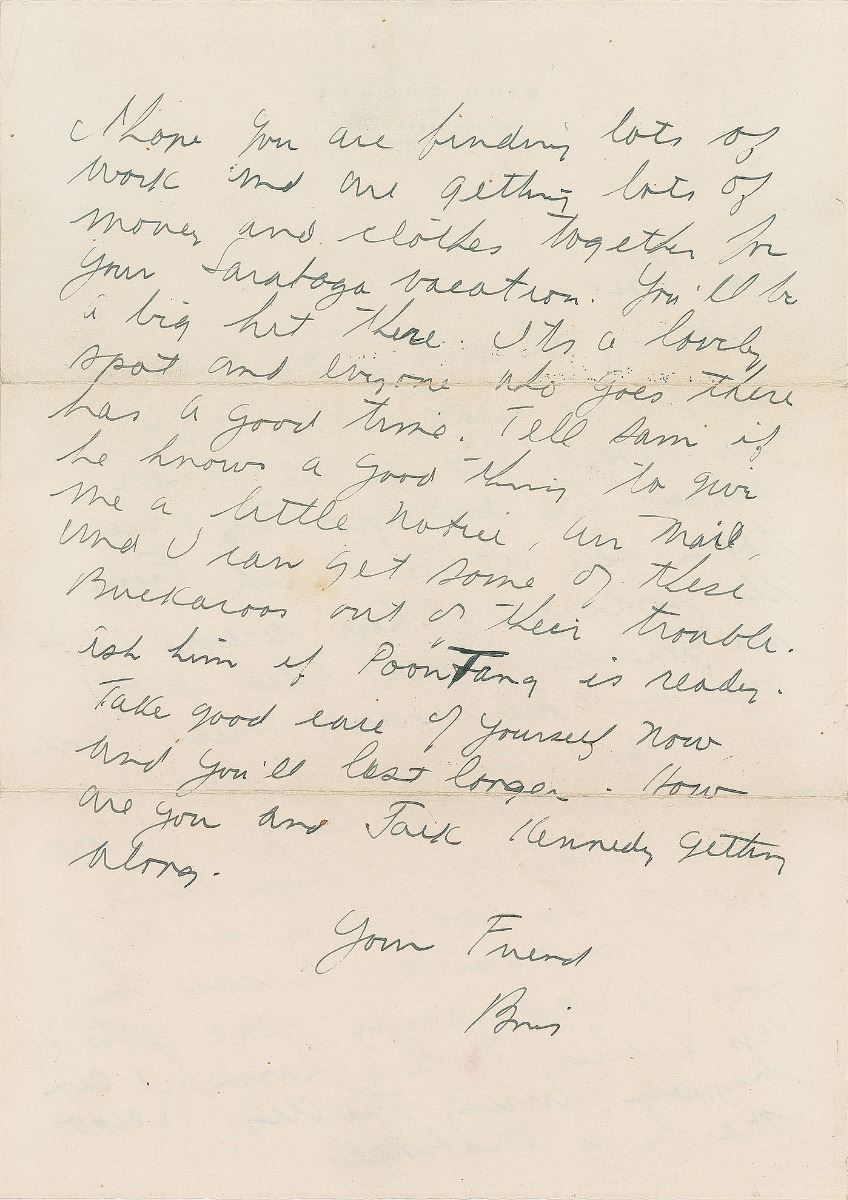 I hope you are finding lots of
work and are getting lots of
money and clothes together for
your Saratoga vacation. You'll be
a big hit there. It's a lovely
spot and everyone who goes there
has a good time. Tell Sam if
he knows a good thing to give
me a little notice, air mail,
and I can get some of these
Buckaroos out of their trouble.
ask him if Poon Tang is ready.
Take good care of yourself now
and you'll last longer. How
are you and Jack Kennedy getting
along.
Your Friend